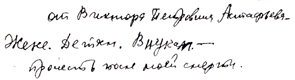 от Виктора Петровича Астафьева.
Жене. Детям. Внукам. —
Прочесть после моей смерти.